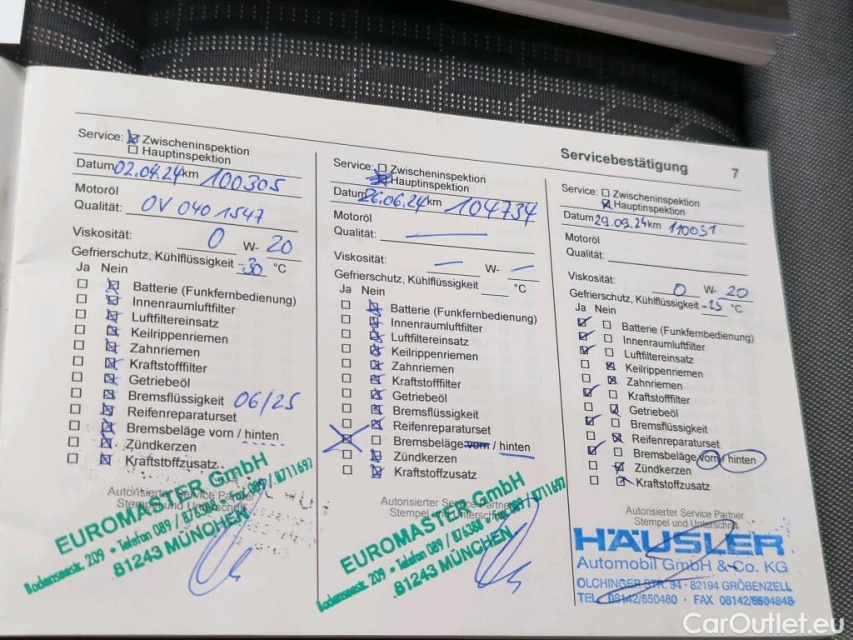 Servicebestätigung 7
Service: Zwischeninspektion
Hauptinspektion
Datum 02.04.24 km 100305
Motoröl
Qualität: OV 040 1547
Viskosität: 0 W- 20
Gefrierschutz, Kühlflüssigkeit -30 °C
Ja Nein
Batterie (Funkfernbedienung)
Innenraumluftfilter
Luftfiltereinsatz
Keilrippenriemen
Zahnriemen
Kraftstofffilter
Getriebeöl
Bremsflüssigkeit 06/25
Reifenreparaturset
Bremsbeläge vorn / hinten
Zündkerzen
Kraftstoffzusatz
Autorisierter Service Partner
Stempel und Unterschrift
EUROMASTER GmbH
Bodenseestr. 209 • Telefon 089 / 876388 • Fax 089 / 8711697
81243 MÜNCHEN
Service: Zwischeninspektion
Hauptinspektion
Datum 26.06.24 km 104734
Motoröl
Qualität: —
Viskosität: — W- —
Gefrierschutz, Kühlflüssigkeit °C
Ja Nein
Batterie (Funkfernbedienung)
Innenraumluftfilter
Luftfiltereinsatz
Keilrippenriemen
Zahnriemen
Kraftstofffilter
Getriebeöl
Bremsflüssigkeit
Reifenreparaturset
Bremsbeläge vorn / hinten
Zündkerzen
Kraftstoffzusatz
Autorisierter Service Partner
Stempel und Unterschrift
EUROMASTER GmbH
Bodenseestr. 209 • Telefon 089 / 876388 • Fax 089 / 8711697
81243 MÜNCHEN
Service: Zwischeninspektion
Hauptinspektion
Datum 29.09.24 km 110051
Motoröl
Qualität:
Viskosität: 0 W- 20
Gefrierschutz, Kühlflüssigkeit -25 °C
Ja Nein
Batterie (Funkfernbedienung)
Innenraumluftfilter
Luftfiltereinsatz
Keilrippenriemen
Zahnriemen
Kraftstofffilter
Getriebeöl
Bremsflüssigkeit
Reifenreparaturset
Bremsbeläge vorn / hinten
Zündkerzen
Kraftstoffzusatz
Autorisierter Service Partner
Stempel und Unterschrift
HÄUSLER
Automobil GmbH & Co. KG
OLCHINGER STR. 94 · 82194 GRÖBENZELL
TEL. 08142/650480 · FAX 08142/6504848
CarOutlet.eu